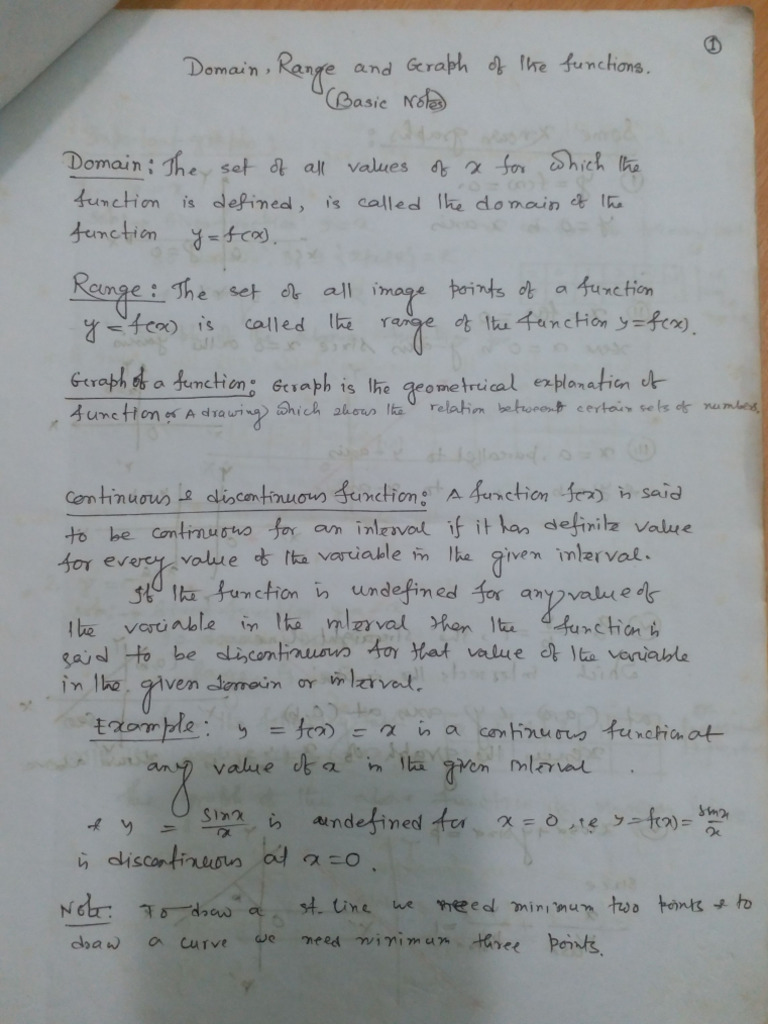 ①
Domain, Range and Graph of the functions.
(Basic Notes)
Domain: The set of all values of x for which the
function is defined, is called the domain of the
function y=f(x).
Range: The set of all image points of a function
y=f(x) is called the range of the function y=f(x).
Graph of a function: Graph is the geometrical explanation of
function or A drawing which shows the relation between certain sets of numbers.
Continuous & discontinuous function: A function f(x) is said
to be continuous for an interval if it has definite value
for every value of the variable in the given interval.
If the function is undefined for any value of
the variable in the interval then the function is
said to be discontinuous for that value of the variable
in the given domain or interval.
Example: y = f(x) = x is a continuous function at
any value of x in the given interval.
& y = sinx/x is undefined for x = 0, i.e y=f(x)= sinx/x
is discontinuous at x=0.
Note: To draw a st. line we need minimum two points & to
draw a curve we need minimum three points.